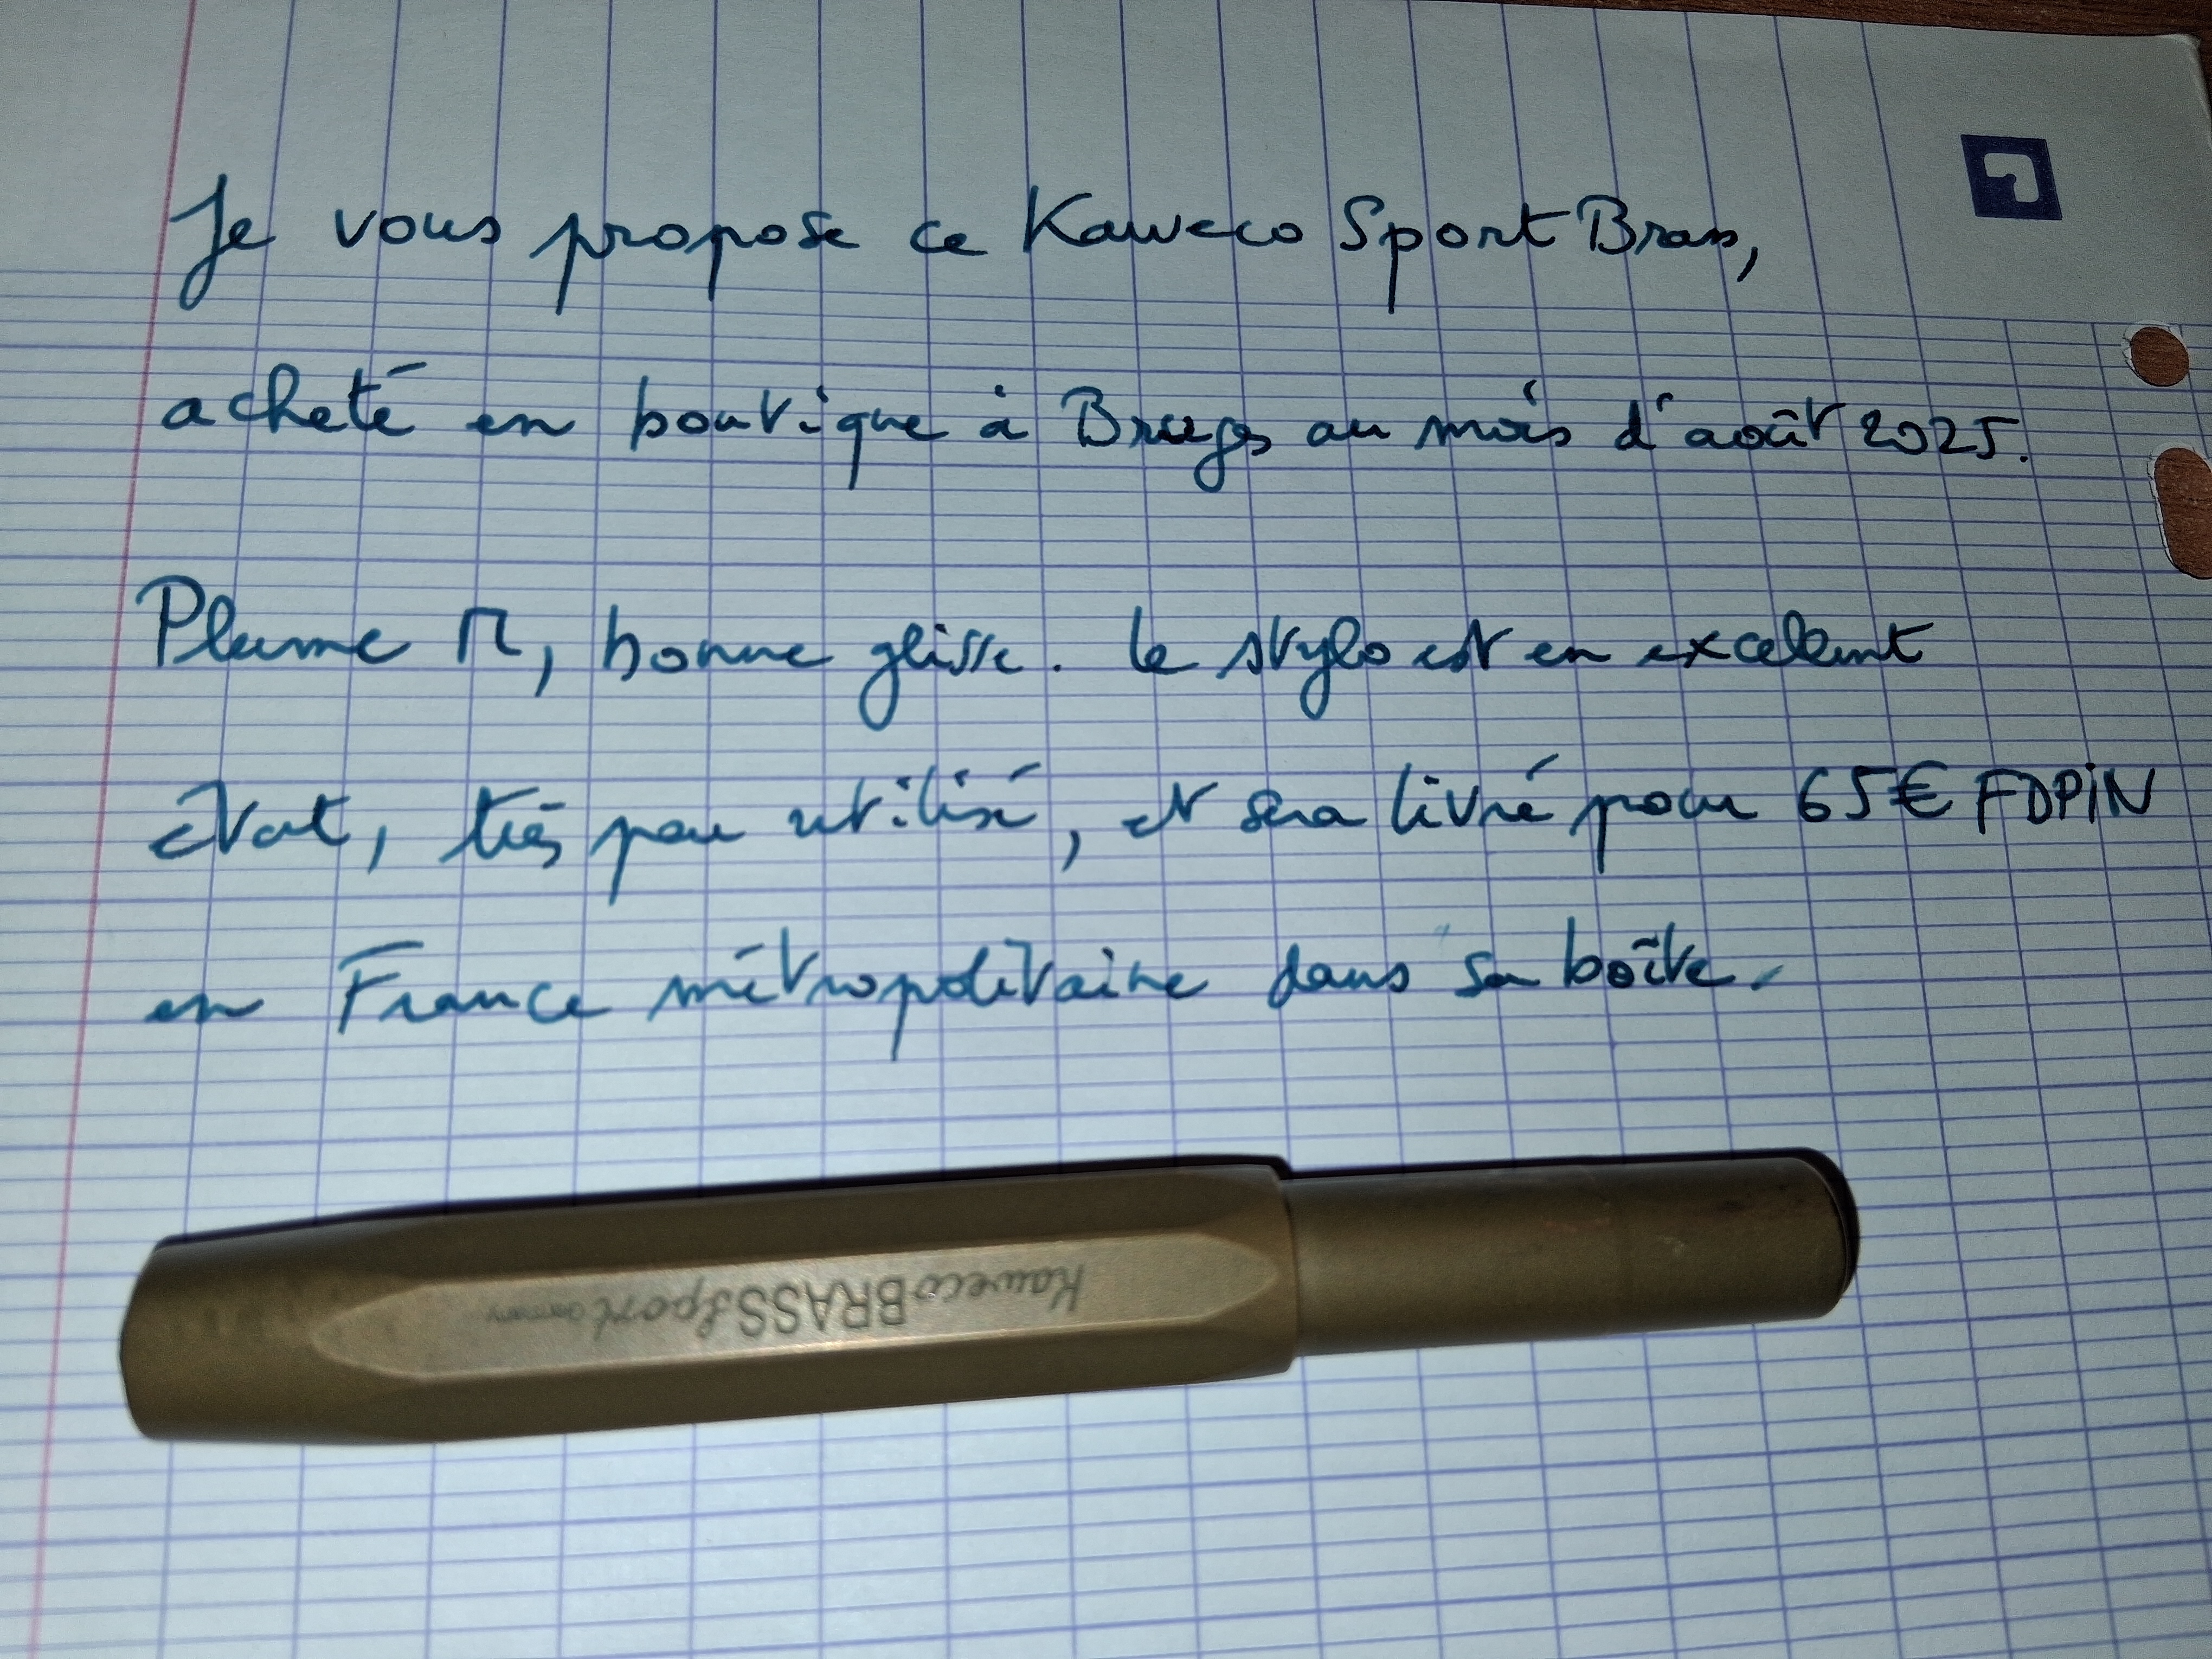 Je vous propose ce Kaweco Sport Brass,
acheté en boutique à Bruges au mois d'août 2025.
Plume M, bonne glisse. Le stylo est en excelent
état, très peu utilisé, et sera livré pour 65€ FDPIN
en France métropolitaine dans sa boîte.
Kaweco BRASS Sport Germany